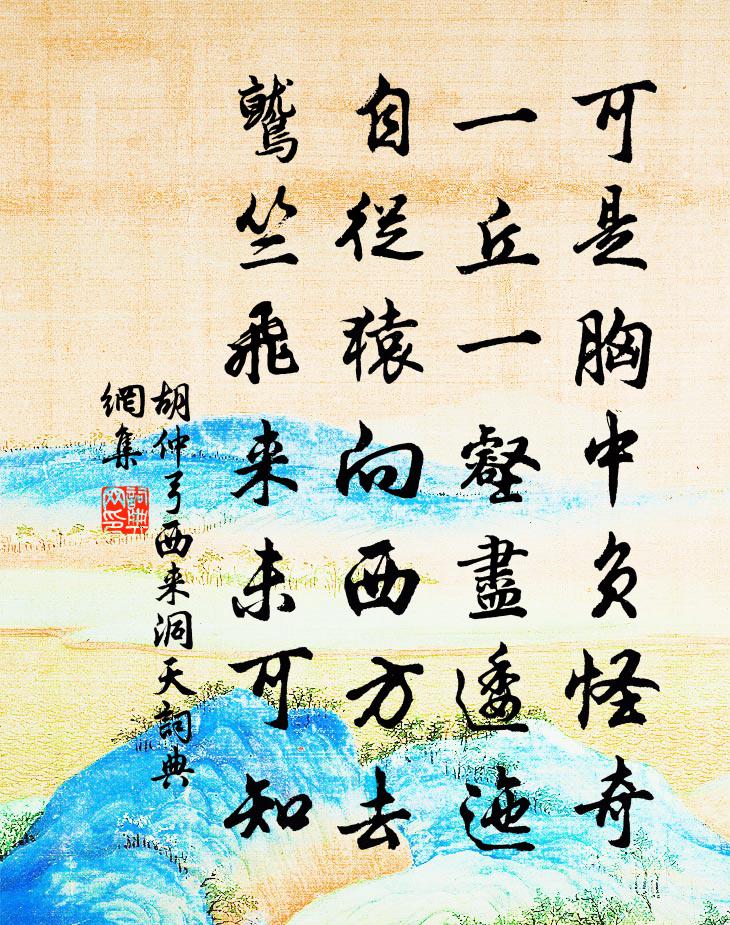 可是胸中负怪奇
一丘一壑盡逶迤
自從猿向西方去
鷲竺飛来未可知
胡仲弓西来洞天詞典
網集
詞典